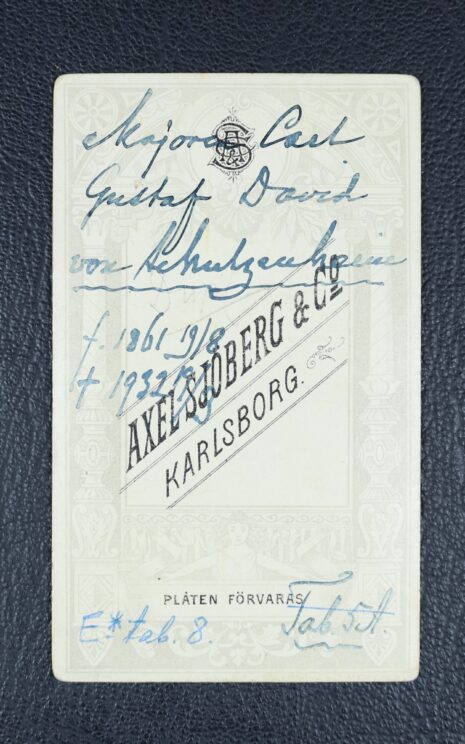 Majoren Carl
Gustaf David
von Schutzenheim
f. 1861 19/8
† 1932
AXEL SJÖBERG & Co
KARLSBORG.
PLÅTEN FÖRVARAS
E* tab. 8.
Tab. 5A.